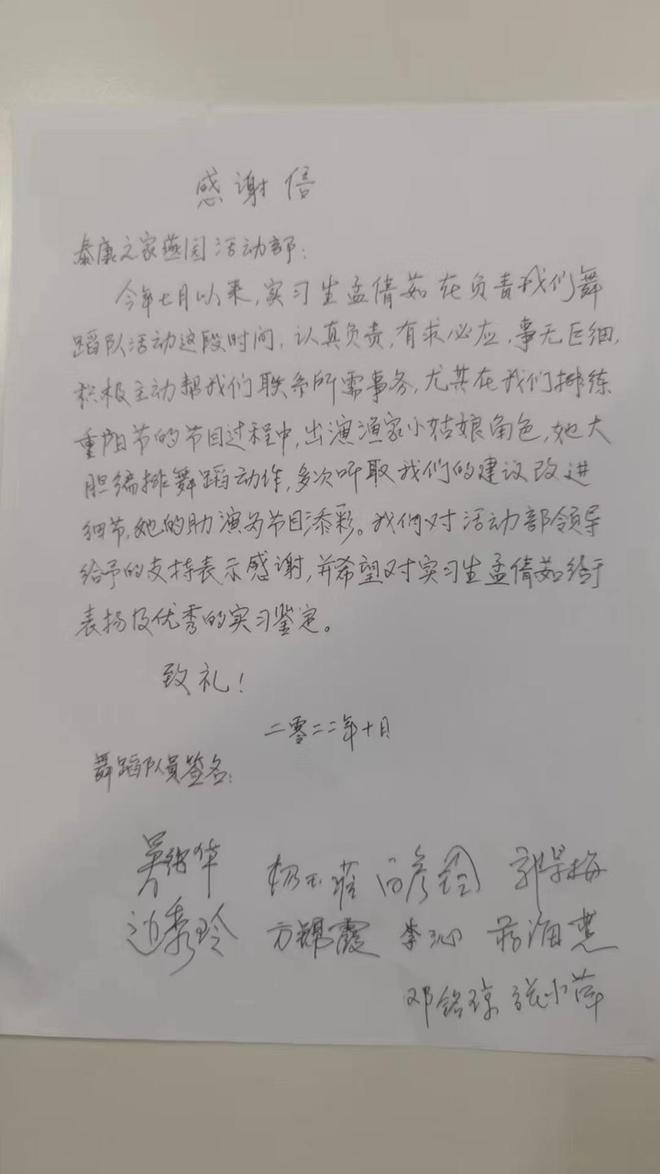 感谢信
泰康之家燕园活动部：
今年七月以来，实习生孟倩茹在负责我们舞
蹈队活动这段时间，认真负责，有求必应，事无巨细，
积极主动帮我们联系所需事务，尤其在我们排练
重阳节的节目过程中，出演渔家小姑娘角色，她大
胆编排舞蹈动作，多次听取我们的建议改进
细节，她的助演为节目添彩。我们对活动部领导
给予的支持表示感谢，并希望对实习生孟倩茹给于
表扬及优秀的实习鉴定。
致礼！
二零二二年十月
舞蹈队员签名：
杨玉 郭景梅
边秀玲 方锦霞 李沁 蒋海慧
邓铭琼 张小萍